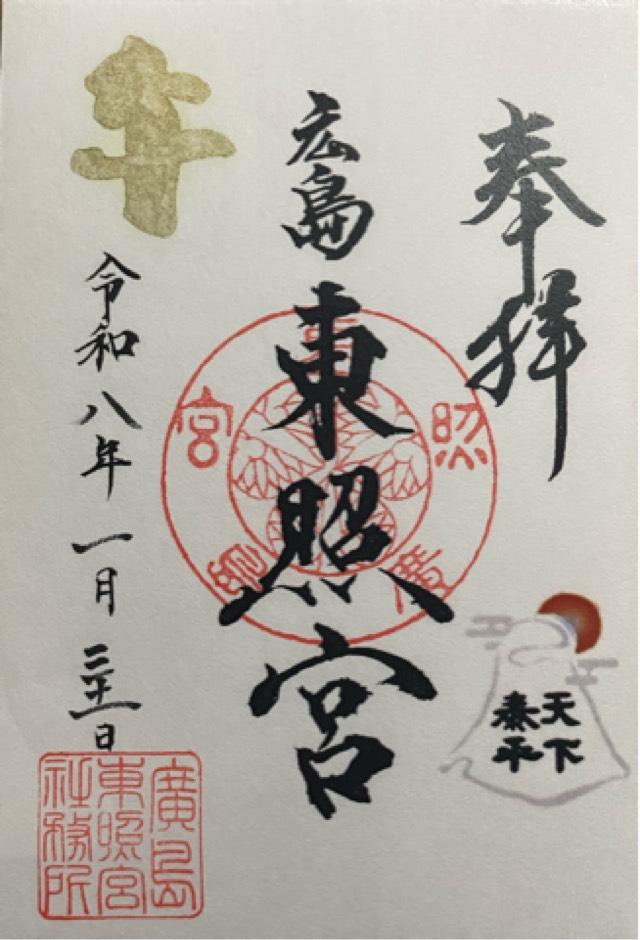 奉拝
広島東照宮
天下
泰平
令和八年一月三十一日
廣島
東照宮
社務所